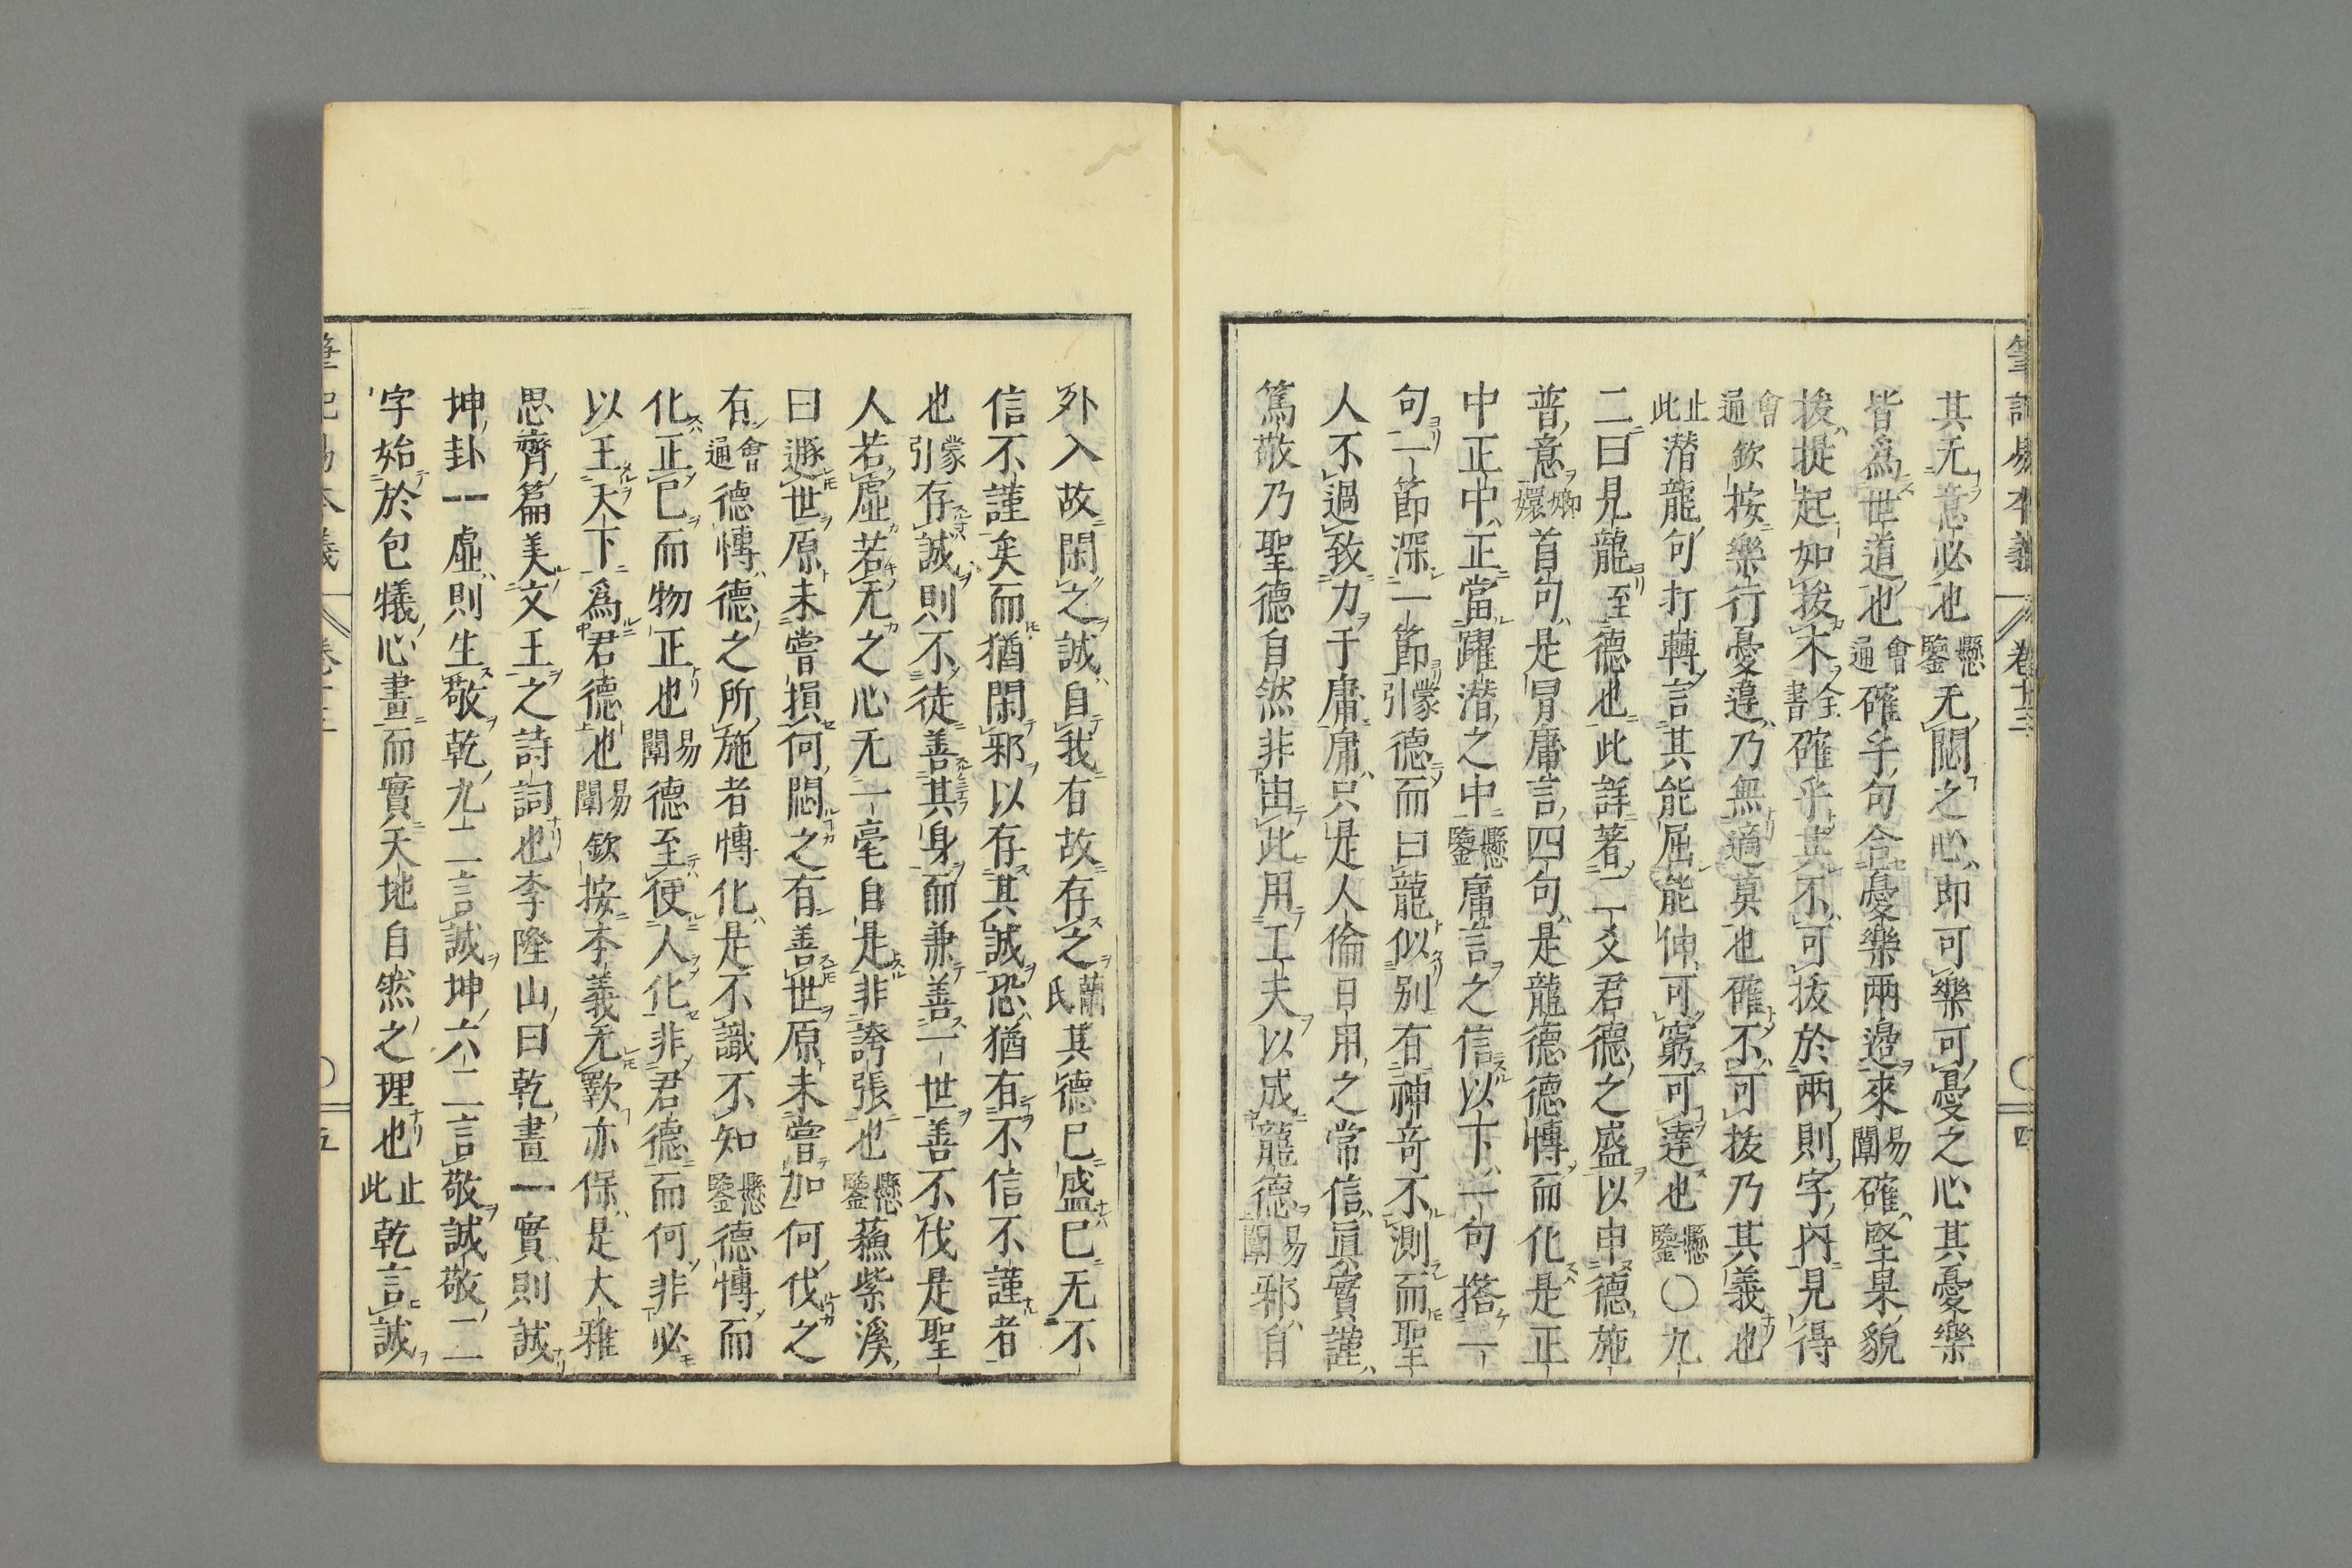 其无意必也懸鑒无悶之心即可樂可憂之心其憂樂
皆爲世道也會通確乎句合憂樂兩邉來易闡確堅果貌
拔提起如拔木全書確乎其不可拔於兩則字内見得
會通欽按樂行憂違乃無適莫也確不可拔乃其義也
止此潜龍句打轉言其能屈能伸可窮可達也懸鑒○九
二曰見龍至德也此詳著二爻君德之盛以申德施
普意嫏嬛首句是冒庸言四句是龍德德愽而化是正
中正中正當躍潜之中懸鑒庸言之信以下一句搭一
句一節深一節蒙引德而曰龍似别有神竒不測而聖
人不過致力于庸庸只是人倫日用之常信眞實謹
篤敬乃聖德自然非由此用工夫以成龍德易闡邪自
外入故閑之誠自我有故存之蘭氏其德已盛已无不
信不謹矣而猶閑邪以存其誠恐猶有不信不謹者
也蒙引存誠則不徒善其身而兼善一世善不伐是聖
人若虛若无之心无一毫自是非誇張也懸鑒蘓紫溪
曰遯世原未嘗損何悶之有善世原未嘗加何伐之
有會通德愽德之所施者愽化是不識不知懸鑒德愽而
化正已而物正也易闡德至便人化非君德而何非必
以王天下爲君德也易闡欽按本義无斁亦保是大雅
思齊篇美文王之詩詞也李隆山曰乾畫一實則誠
坤卦--虛則生敬乾九二言誠坤六二言敬誠敬二
字始於包犧心畫而實天地自然之理也止此乾言誠